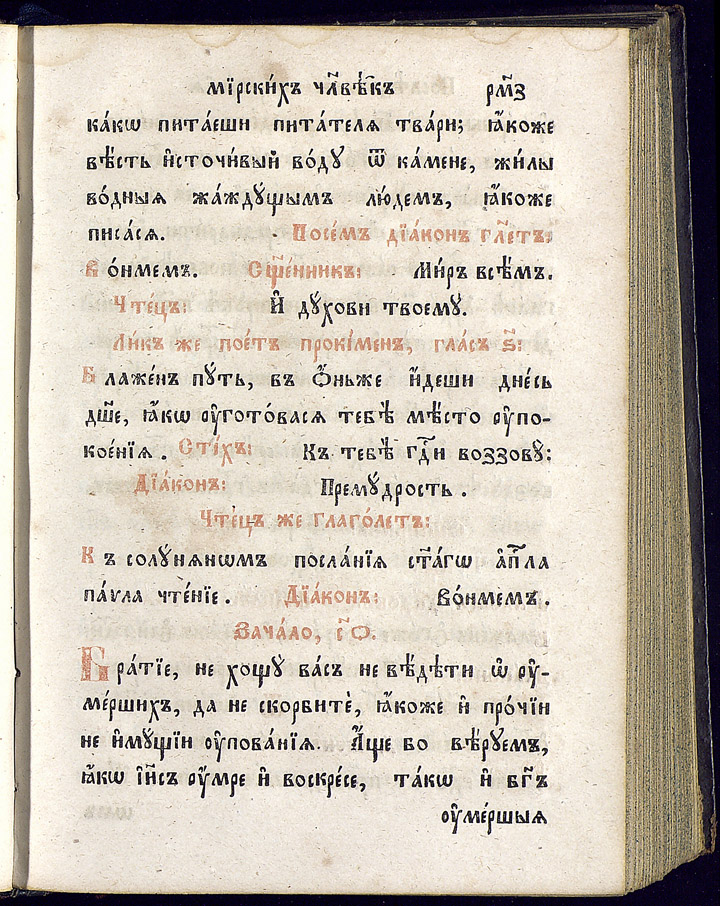 мїрски́хъ чл҃вѣ́къ рм҃з
ка́кѡ пита́еши пита́телѧ тва́ри; ꙗ҆́коже
вѣ́сть и҆сточи́вый во́дꙋ ѿ ка́мене, жи́лы
вѡ́дныѧ жа́ждꙋщымъ лю́демъ, ꙗ҆́коже
писа́сѧ. Посе́мъ дїа́конъ гл҃етъ:
Во́нмемъ. Сщ҃е́нникъ: Ми́ръ всѣ̑мъ.
Чте́цъ: И҆ дꙋ́хови твоемꙋ̀.
Ли́къ же пое́тъ проки́менъ, гла́съ ѕ҃:
Блаже́нъ пꙋ́ть, въ ѻ҆́ньже и҆́деши дне́сь
дш҃е, ꙗ҆́кѡ ᲂу҆гото́васѧ тебѣ̀ мѣ́сто ᲂу҆по-
кое́нїѧ. Сті́хъ: Къ тебѣ̀ гдⷭ҇и воззовꙋ̀:
Дїа́конъ: Премꙋ́дрость.
Чте́цъ же глаго́летъ:
Къ солꙋ́нѧнѡмъ посла́нїѧ ст҃а́гѡ а҆пⷭ҇ла
па́ѵла чте́нїе. Дїа́конъ: Во́нмемъ.
Зача́ло, с҃о.
Бра́тїе, не хощꙋ̀ ва́съ не вѣ́дѣти ѡ҆ ᲂу҆-
ме́ршихъ, да не скорбитѐ, ꙗ҆́коже и҆ про́чїи
не и҆мꙋ́щїи ᲂу҆пова́нїѧ. А҆́ще бо вѣ́рꙋемъ,
ꙗ҆́кѡ і҆и҃съ ᲂу҆́мре и҆ воскре́се, та́кѡ и҆ бг҃ъ
ᲂу҆ме́ршыѧ